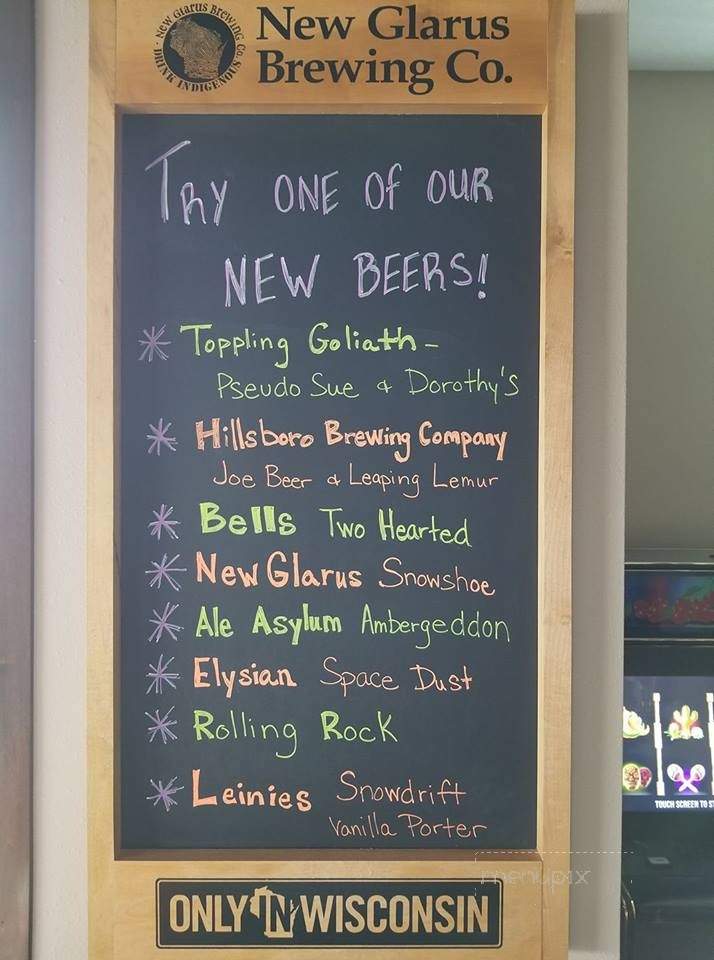 New Glarus Brewing Co.
DRINK INDIGENOUS
New Glarus
Brewing Co.
Try ONE OF OUR
NEW BEERS!
* Toppling Goliath -
Pseudo Sue & Dorothy's
* Hillsboro Brewing Company
Joe Beer & Leaping Lemur
* Bells Two Hearted
* New Glarus Snowshoe
* Ale Asylum Ambergeddon
* Elysian Space Dust
* Rolling Rock
* Leinies Snowdrift
Vanilla Porter
menupix
ONLY IN WISCONSIN
TOUCH SCREEN TO